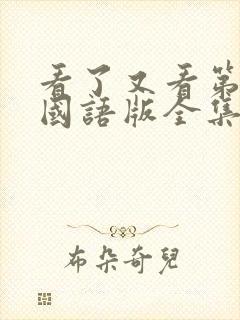 看了又看第
國語版全集
布朵奇兒